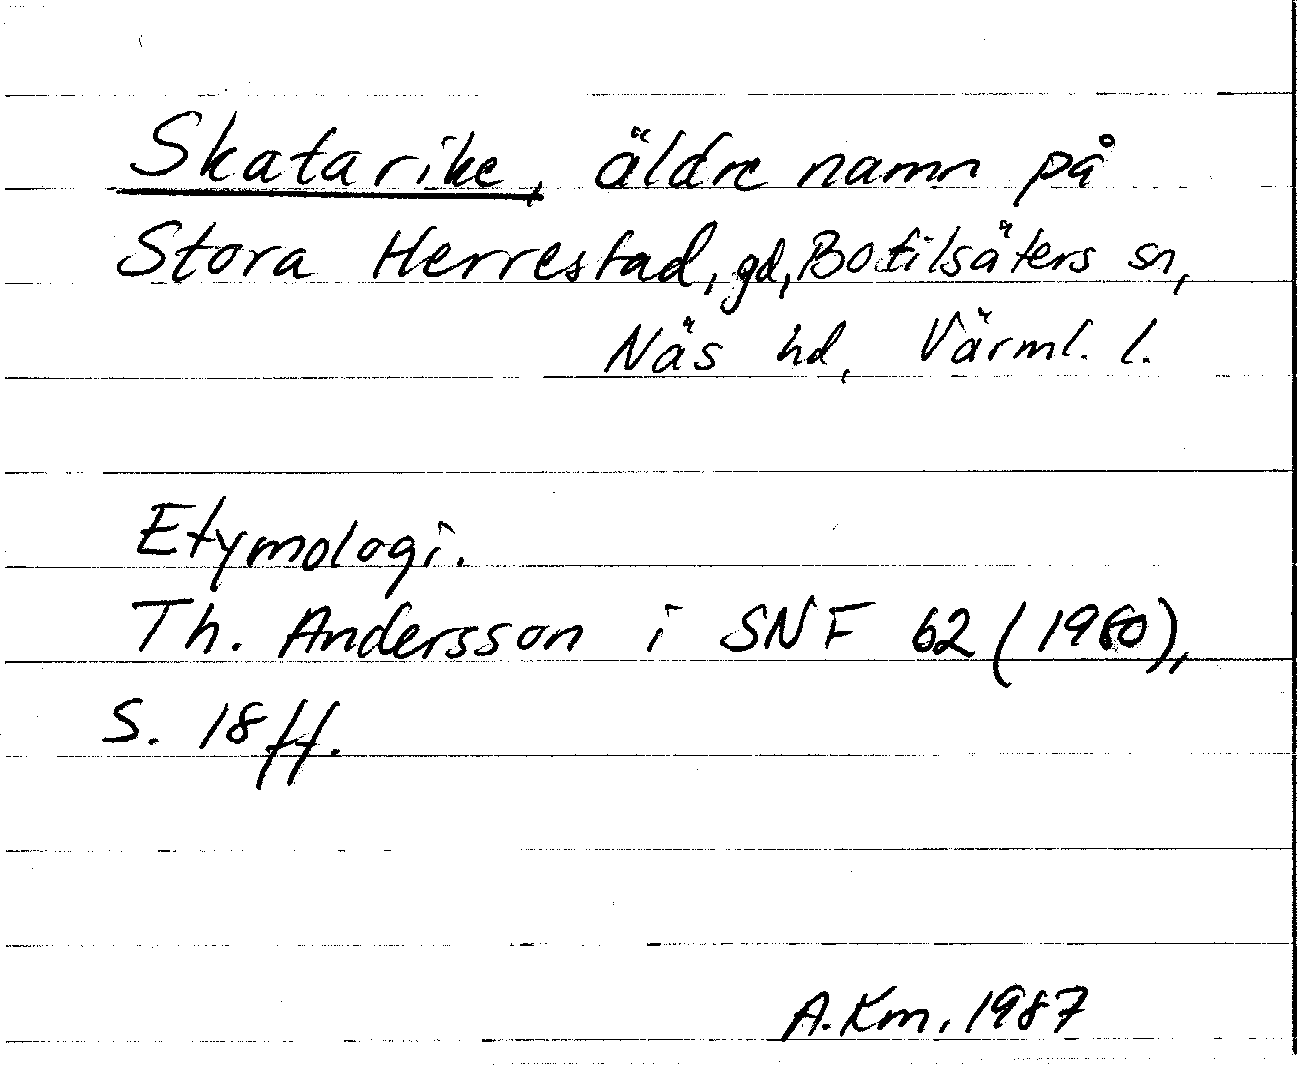 Skatarike, äldre namn på
Stora Herrestad, gd, Botilsäters sn,
Näs hd, Värml. l.
Etymologi.
Th. Andersson i SNF 62 (1980),
s. 18 ff.
A. Km. 1987